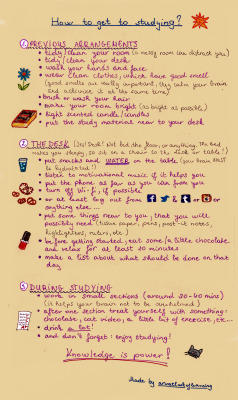 How to get to studying?
1. PREVIOUS ARRANGEMENTS
• tidy/clean your room (a messy room can distract you)
• tidy/clean your desk
• wash your hands and face
• wear clean clothes, which have good smell
(good smells are really important, they calm your brain
and activate it at the same time)
• brush or wash your hair
• make your room bright (as bright as possible)
• light scented candle/candles
• put the study materials near to your desk
2. THE DESK (Yes! Desk! Not bed, the floor, or anything. The bed
makes you sleepy, so sit on a chair to the desk or table!)
• put snacks and WATER on the table (your brain must
be hydrated!)
• listen to motivational music if it helps you
• put the phone as far as you can from you
• or turn off Wi-fi, if possible
• or at least log out from f & t or or
anything else...
• put some things near to you, that you will
possibly need (tissue paper, pens, post-it notes,
highlighters, rulers, etc.)
• before getting started, eat some/a little chocolate
and relax for at least 10 minutes
• make a list about what should be done on that
day
3. DURING STUDYING
• work in small sections (around 30-40 mins)
(it helps your brain not to be overwhelmed)
• after one section treat yourself with something:
chocolate, cat video, a little bit of exercise, etc...
• drink a lot!
• and don't forget: enjoy studying!
Knowledge is power!
Made by